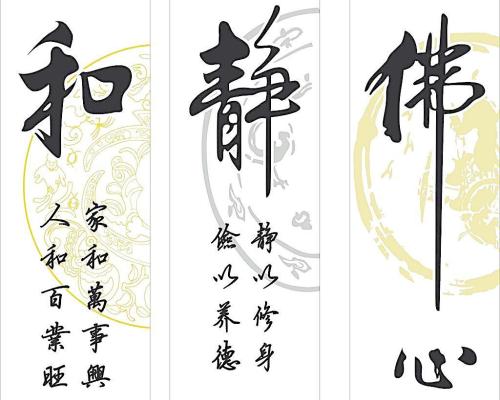 和
家和萬事興
人和百業旺
静
静以修身
儉以养德
佛心